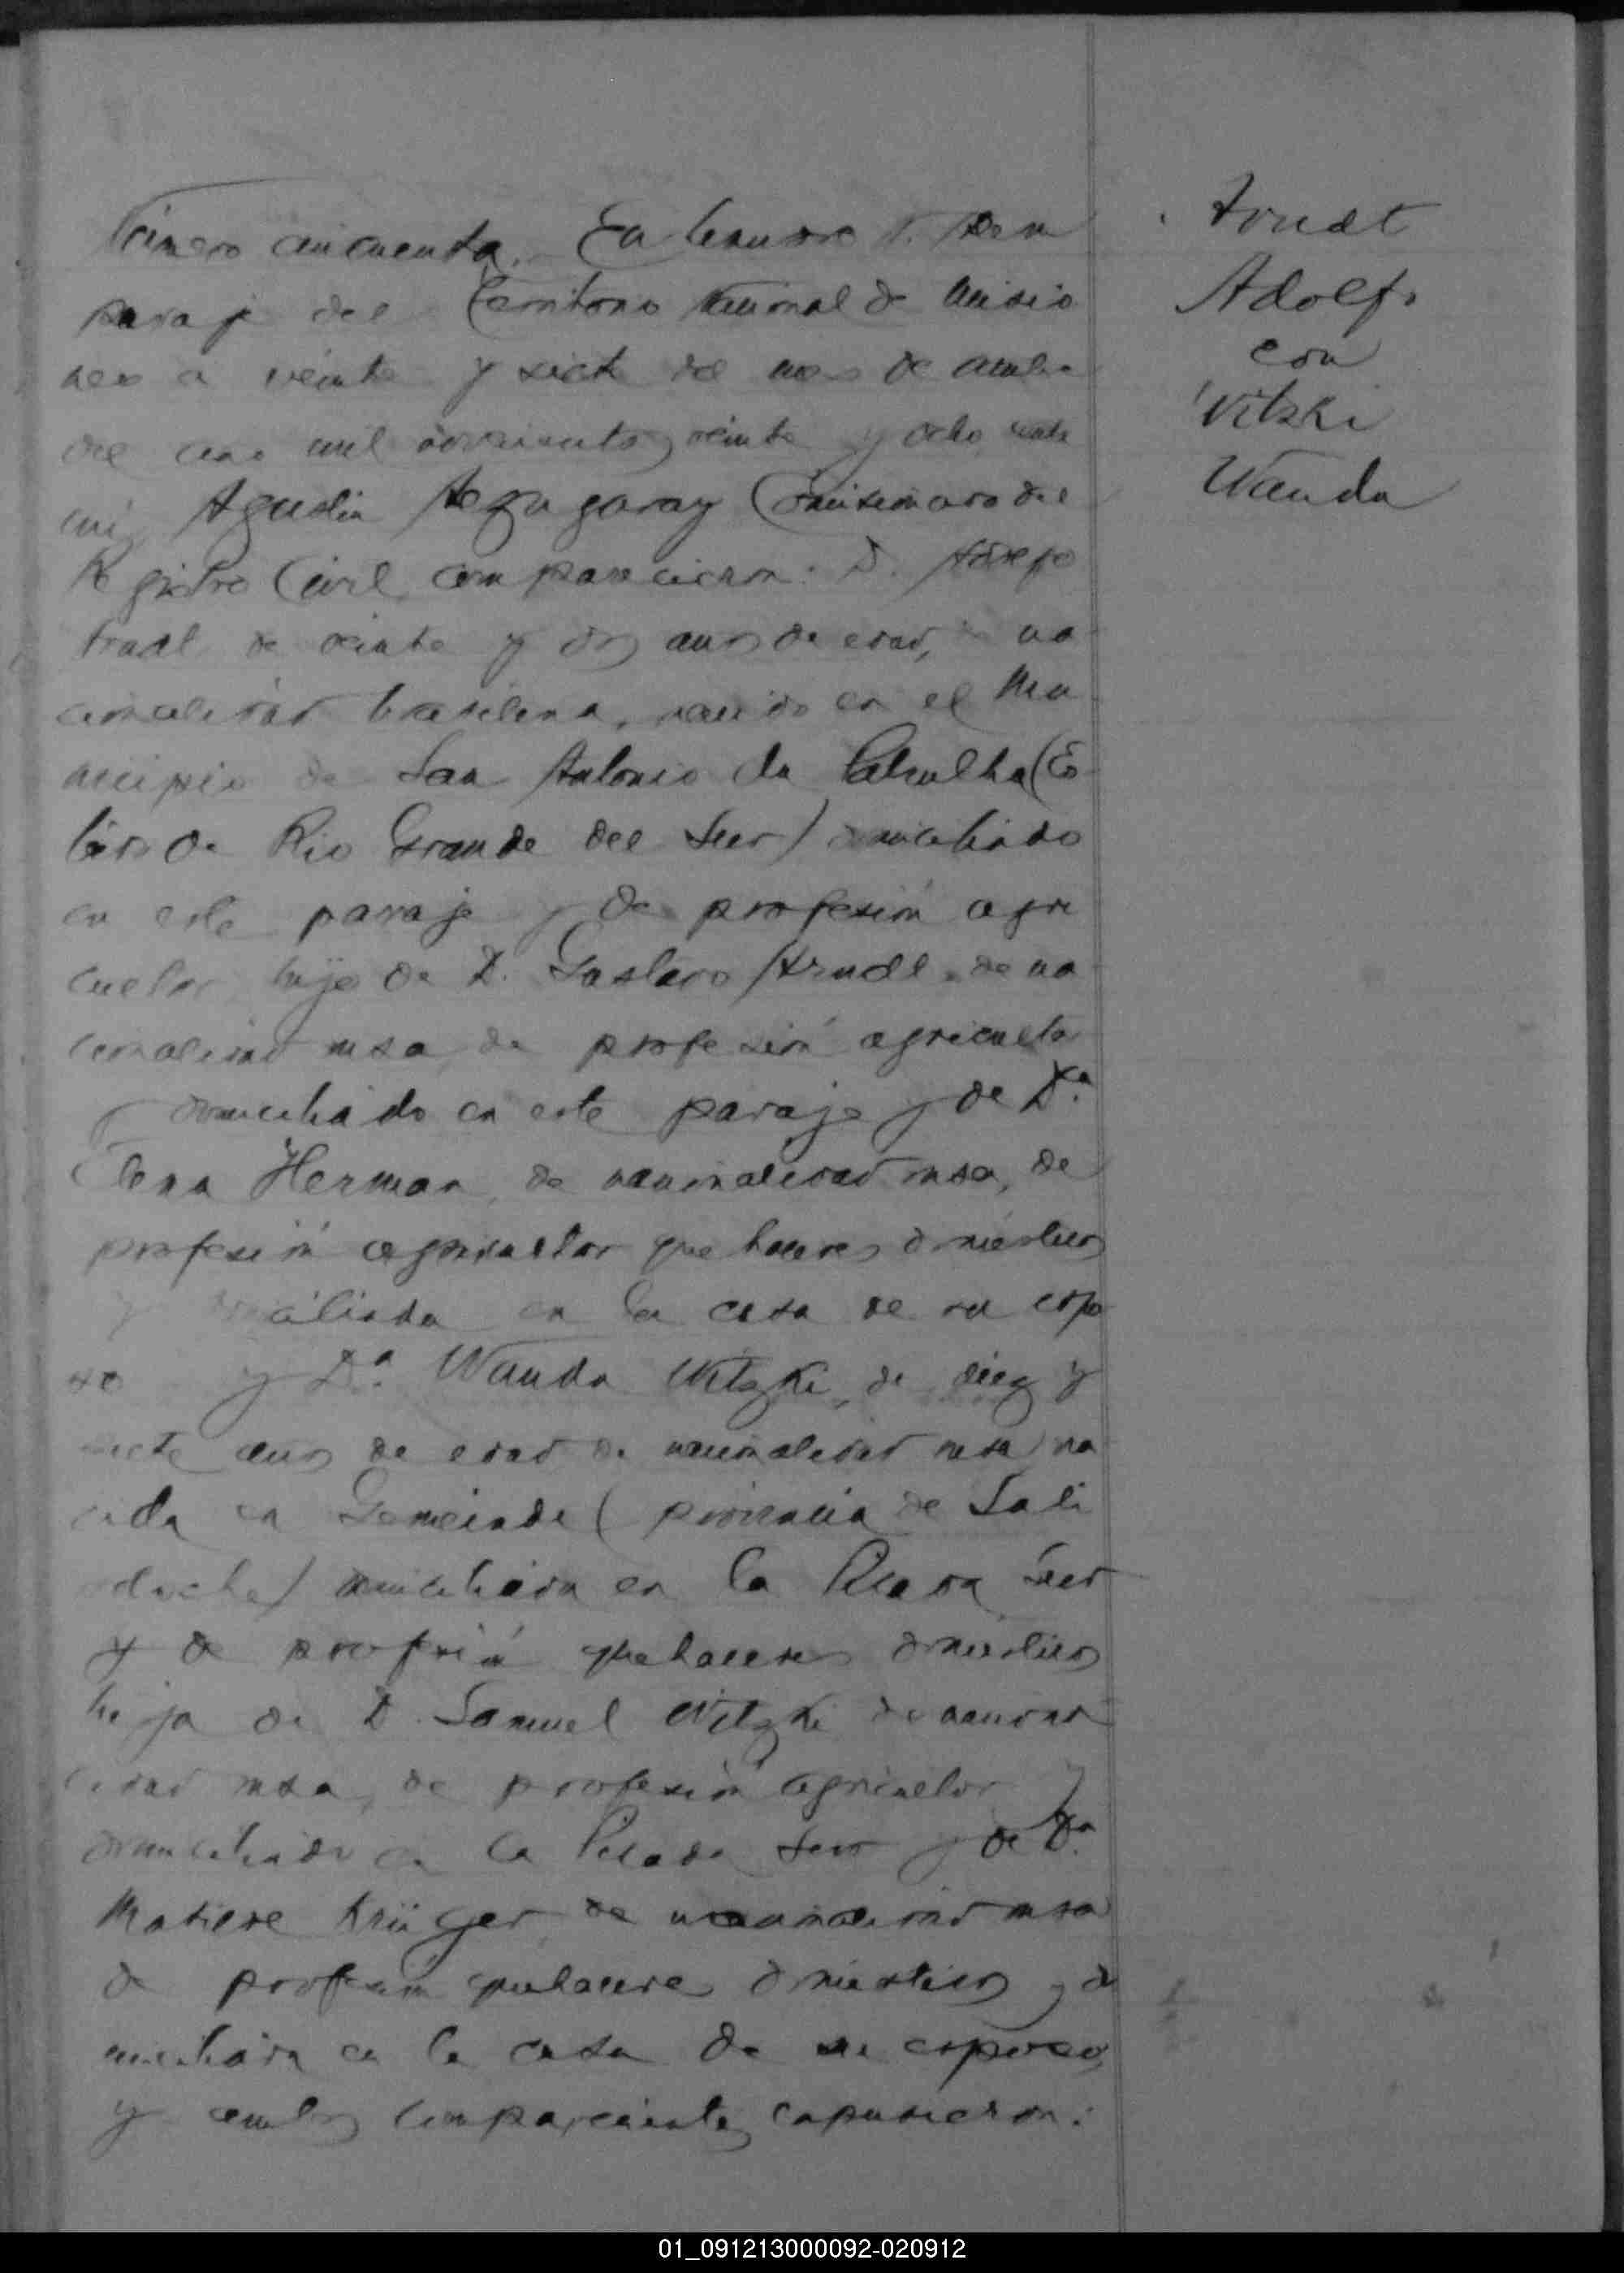 Número cincuenta. En Leandro N. Alem
paraje del Territorio Nacional de Misio
nes a veinte y siete del mes de
del año mil novecientos veinte y ocho, ante
mi, Agustin Aezagaray Comisionado del
Registro Civil comparecieron: D. Adolfo
Arndt de veinte y dos años de edad, de na
cionalidad brasilena, nacido en el Mu
nicipio de San Antonio da Patrulha (Es
tado de Rio Grande del Sur) domiciliado
en este paraje y de profesión agri
cultor, hijo de D. Gustavo Arndt, de na
cionalidad rusa, de profesión agriculto
y domiciliado en este paraje y de Da.
Elena Herman, de nacionalidad rusa, de
profesión agricultor quehaceres domésticos
y domiciliada en la casa de su espo
so y Da. Wanda Witzki, de diez y
siete años de edad de nacionalidad rusa na
cida en Gemeinde (provincia de
domiciliada en la Picada Sur
y de profesión quehaceres domésticos
hija de D. Samuel Witzki de nacional
idad rusa, de profesión agricultor y
domiciliado en la Picada Sur y de Da.
Matilde Krüger, de nacionalidad rusa
de profesión quehaceres domésticos y do
miciliada en la casa de su esposo,
y ambos comparecientes expusieron:
Arndt
Adolfo
con
Witzki
Wanda
01_091213000092-020912